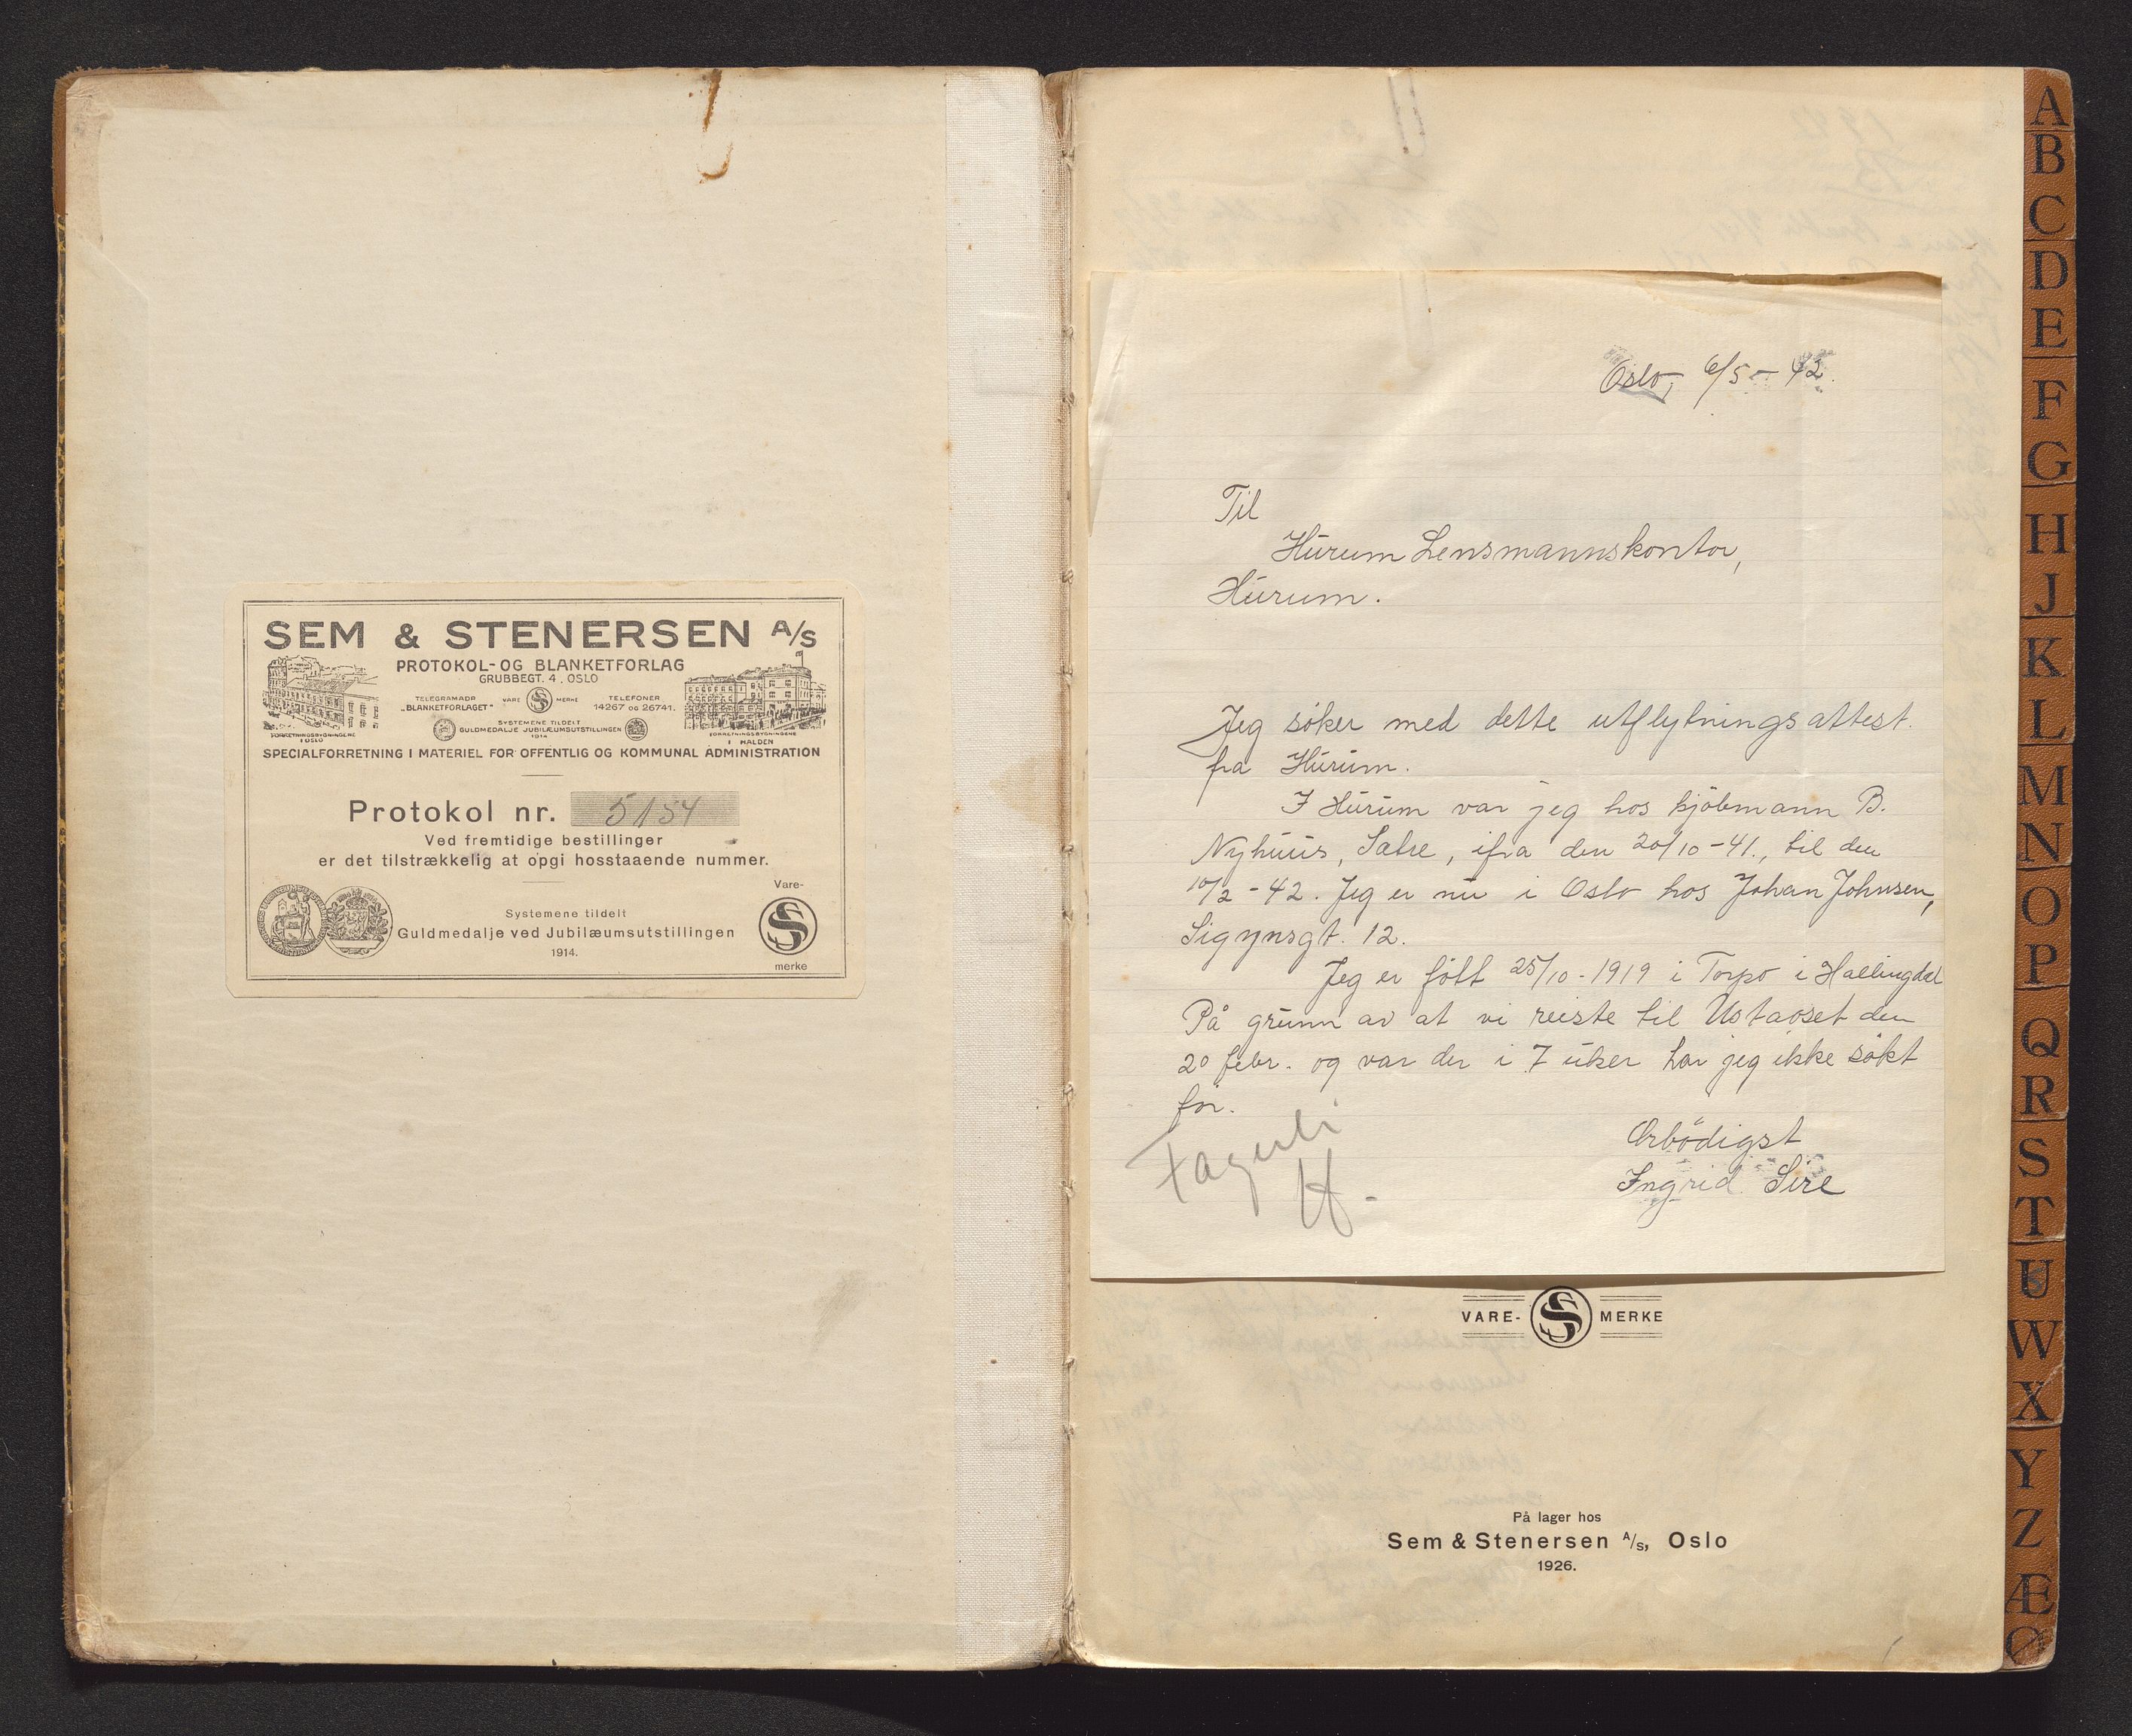 SEM & STENERSEN A/S
PROTOKOL- OG BLANKETFORLAG
GRUBBEGT. 4, OSLO
TELEGRAMADR
„BLANKETFORLAGET"
VARE MERKE
TELEFONER
14267 OG 26741.
SYSTEMENE TILDELT
GULDMEDALJE JUBILÆUMSUTSTILLINGEN
1914
FORRETNINGSBYGNINGENE
I OSLO
FORRETNINGSBYGNINGENE
I HALDEN
SPECIALFORRETNING I MATERIEL FOR OFFENTLIG OG KOMMUNAL ADMINISTRATION
Protokol nr. 5154
Ved fremtidige bestillinger
er det tilstrækkelig at opgi hosstaaende nummer.
Systemene tildelt
Guldmedalje ved Jubilæumsutstillingen
1914.
Vare-
merke
Oslo, 6/5 - 42.
Til
Hurum Lensmannskontor,
Hurum.
Jeg søker med dette utflytningsattest.
fra Hurum.
I Hurum var jeg hos kjöbmann B.
Nyhuus, Sætre, ifra den 20/10-41., til den
10/2-42. Jeg er nu i Oslo hos Johan Johnsen,
Sigynsgt. 12.
Jeg er född 25/10-1919 i Torpo i Hallingdal
På grunn av at vi reiste til Ustaoset den
20 febr. og var der i 7 uker har jeg ikke søkt
för.
Ærbödigst
Ingrid Sire
Fagerli
H-
VARE- MERKE
På lager hos
Sem & Stenersen A/S, Oslo
1926.
A
B
C
D
E
F
G
H
J
K
L
M
N
O
P
Q
R
S
T
U
W
X
Y
Z
Æ
Ø